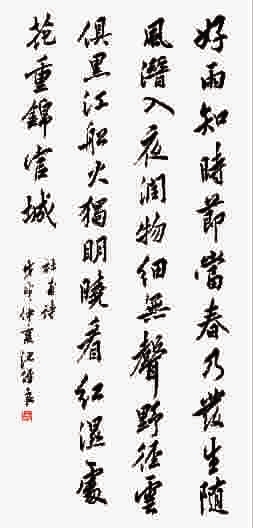 好雨知時節當春乃發生随
風潛入夜潤物細無聲野徑雲
俱黑江船火獨明曉看紅濕處
花重錦官城
杜甫詩
仲夏沈